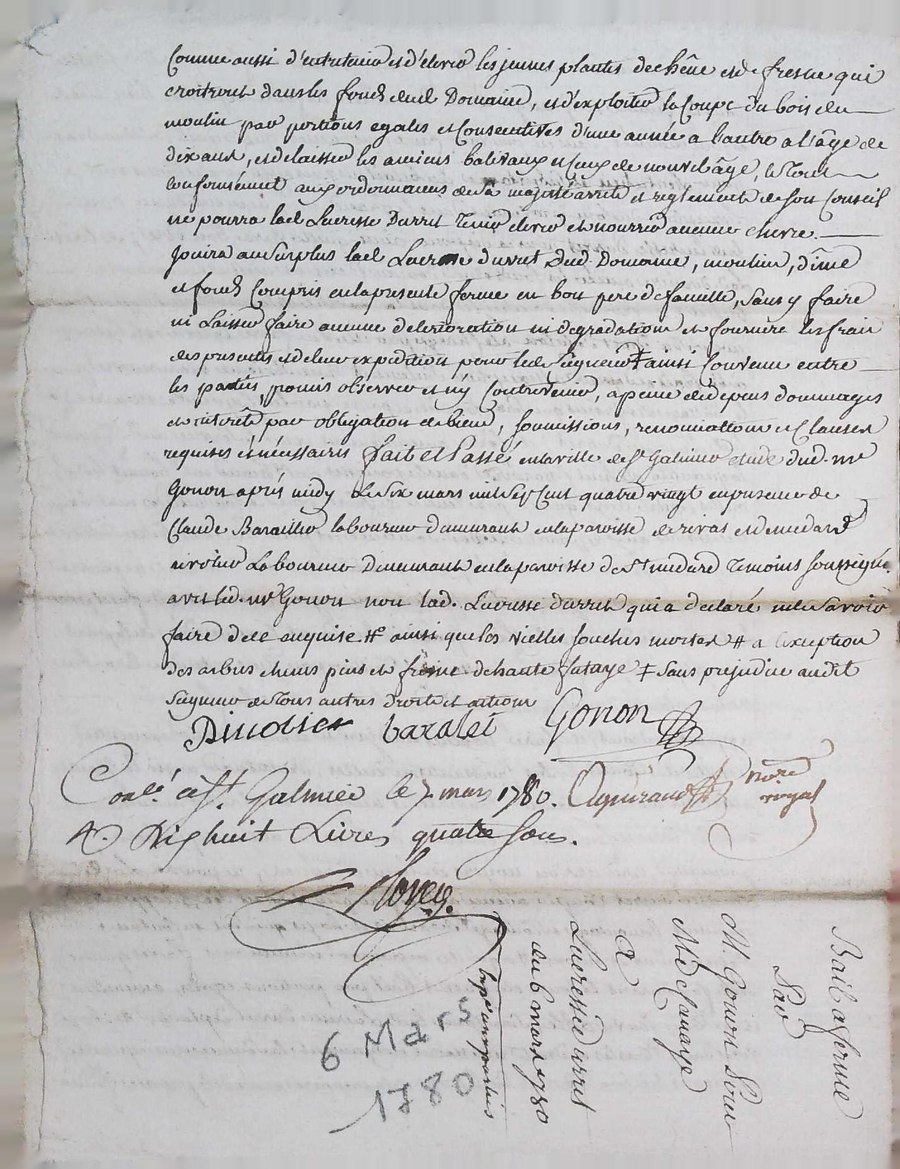 Comme aussi d'entretenir et d'élever les jeunes plantes de chêne et de fresne qui
croitront dans les fonds dud. Domaine, et d'exploiter la Coupe du bois du
moulin par portions egales et Consecutives d'une année a l'autre a l'âge de
dix ans, et de laisser les anciens balivaux et ceux de nouvel âge, le Tout
conformément aux ordonnances de sa majesté arrets et reglements de son Conseil
ne pourra lad. Lucresse Durret Tenir élever et nourrir aucune chevre.
Jouira au Surplus lad. Lucresse durret Dud. Domaine, moulin, dîme
et fonds Compris en la presente ferme en bon pere de famille, sans y faire
ni Laisser faire aucune deterioration ni degradation et fournira les frais
des presentes et de leur expedition pour led. Seigneur ‡ ainsi Convenu entre
les parties, promis observer et n'y Contrevenir, a peine de depens dommages
et interêts par obligation de biens, soumissions, renonciations et Clauses
requises et nécessaires fait et Passé en la ville de St. Galmier etude dud. me
Gonon après midy Le Six mars mil Sept Cent quatre vingt en presence de
Claude Baraillier laboureur demeurant en la paroisse de rivas et de medard
Laboureur Demeurant en la paroisse de St. medard Temoins Soussignés
avec led. me Gonon non lad. Lucresse durret qui a declaré ne le Savoir
faire de ce enquise. # ainsi que les vielles souches mortes # a l'exception
des arbres chenes pins et frêne de haute futaye ‡ Sans prejudice audit
Seigneur de Tous autres Droits et actions
baralei Gonon
Conlé. a St. Galmier le 7 mars 1780.
notre
royal
R. Dix huit Livres quatre Sous.
6 Mars
1780
Bail a ferme
Par
M. Gonon Sieur
A
Lucresse durret
du 6 mars 1780